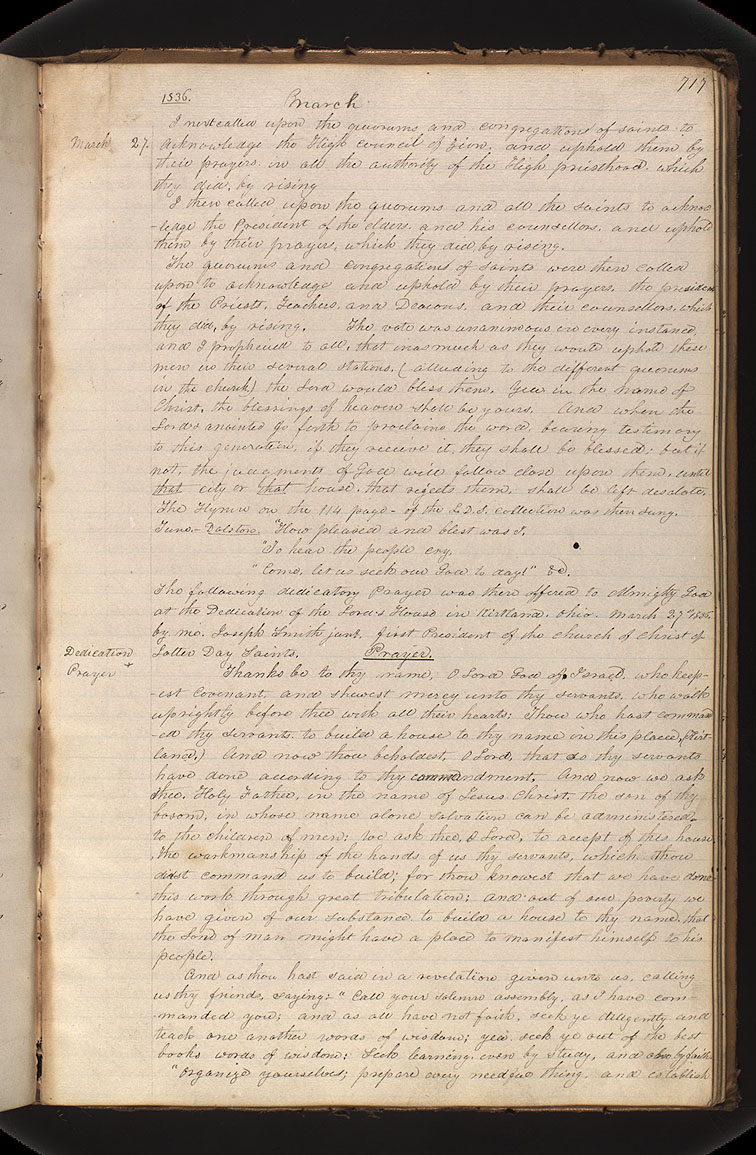 717
1836. March
March 27. I next called upon the quorums and congregations of saints to
acknowledge the High council of Zion, and uphold them by
their prayers in all the authority of the High priesthood, which
they did, by rising
I then called upon the quorums and all the saints to acknow
-ledge the President of the elders, and his counsellors, and uphold
them by their prayers, which they did, by rising.
The quorums and congregations of saints were then called
upon to acknowledge and uphold by their prayers, the president
of the Priests, Teachers, and Deacons, and their counsellors, which
they did, by rising. The vote was unanimous in every instance,
and I prophecied to all, that inasmuch as they would uphold these
men in their several stations, (alluding to the different quorums
in the church) the Lord would bless them, Yea in the name of
Christ, the blessings of heaven shall be yours. And when the
Lord's anointed go forth to proclaim the word, bearing testimony
to this generation, if they receive it, they shall be blessed; but if
not, the judgments of God will follow close upon them, until
that city or that house, that rejects them, shall be left desolate.
The Hymn on the 114 page - of the L.D.S. collection was then sung.
Tune- Dalston. "How pleased and blest was I,
"To hear the people cry,
"Come, let us seek our God to day!" &c.
The following dedicatory Prayer was then offered to Almighty God
at the Dedication of the Lord's House in Kirtland, Ohio. March 27th 1836.
by me. Joseph Smith junr. first President of the Church of Christ of
Dedication Prayer + Latter Day Saints. Prayer.
Thanks be to thy name, O Lord God of Israel, who keep-
-est Covenant, and shewest mercy unto thy servants, who walk
uprightly before thee with all their hearts: Thou who hast command
-ed thy servants to build a house to thy name in this place, (Kirt-
land.) And now thou beholdest, O Lord, that so thy servants
have done according to thy commandment. And now we ask
thee, Holy Father, in the name of Jesus Christ, the son of thy
bosom, in whose name alone salvation can be administered
to the children of men: we ask thee, O Lord, to accept of this house,
the workmanship of the hands of us thy servants, which thou
didst command us to build; for thou knowest that we have done
this work through great tribulation; and out of our poverty we
have given of our substance to build a house to thy name, that
the Son of man might have a place to manifest himself to his
people.
And as thou hast said in a revelation given unto us, calling
us thy friends, saying:- "Call your solemn assembly, as I have com-
-manded you; and as all have not faith, seek ye diligently and
teach one another words of wisdom; yea seek ye out of the best
books words of wisdom: Seek learning, even by study, and also by faith.
"Organize yourselves; prepare every needful thing, and establish